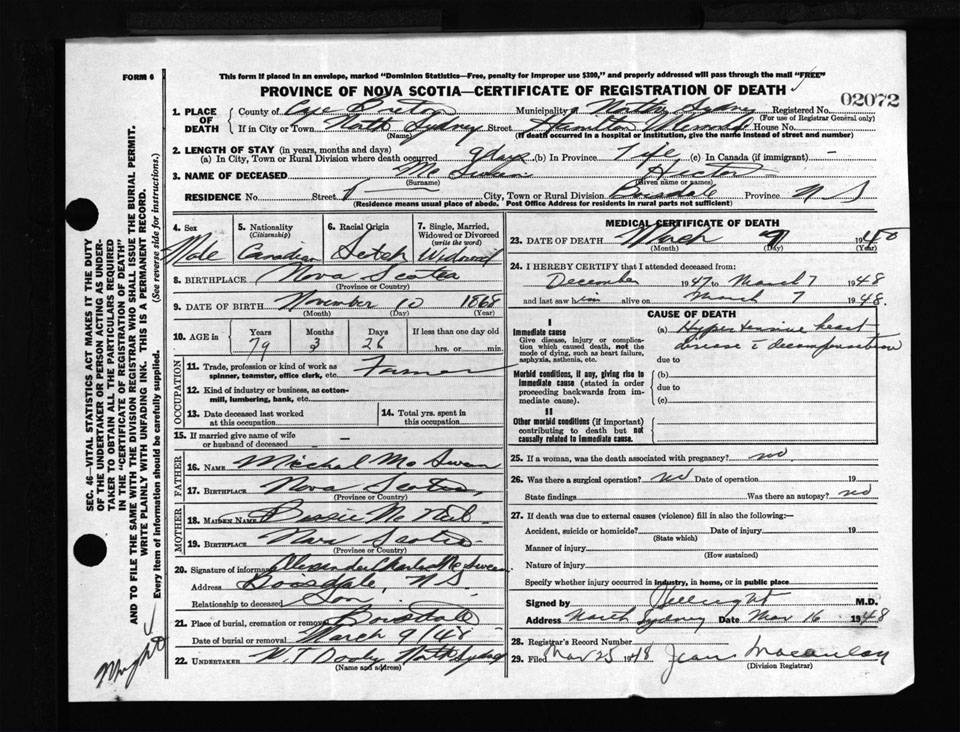 FORM 6
This form if placed in an envelope, marked "Dominion Statistics—Free, penalty for improper use $300," and properly addressed will pass through the mail "FREE"
PROVINCE OF NOVA SCOTIA—CERTIFICATE OF REGISTRATION OF DEATH
02072
1. PLACE OF DEATH County of Cape Breton Municipality North Sydney Registered No.
(For use of Registrar General only)
If in City or Town North Sydney Street Hamilton Memorial House No.
(Name) (If death occurred in a hospital or institution, give the name instead of street and number)
2. LENGTH OF STAY (in years, months and days)
(a) In City, Town or Rural Division where death occurred 9 days (b) In Province Life (c) In Canada (if immigrant) -
3. NAME OF DECEASED Mc Swain Hector
(Surname) (Given name or names)
RESIDENCE No. Street City, Town or Rural Division Boisdale Province N S
(Residence means usual place of abode. Post Office Address for residents in rural parts not sufficient)
4. Sex Male
5. Nationality (Citizenship) Canadian
6. Racial Origin Scotch
7. Single, Married, Widowed or Divorced (write the word) Widowed
8. BIRTHPLACE Nova Scotia
(Province or Country)
9. DATE OF BIRTH November 10 1868
(Month) (Day) (Year)
10. AGE in Years 79 Months 3 Days 26 If less than one day old hrs. or min.
OCCUPATION
11. Trade, profession or kind of work as spinner, teamster, office clerk, etc. Farmer
12. Kind of industry or business, as cotton-mill, lumbering, bank, etc.
13. Date deceased last worked at this occupation
14. Total yrs. spent in this occupation
15. If married give name of wife or husband of deceased -
FATHER
16. NAME Michal Mc Swain
17. BIRTHPLACE Nova Scotia
(Province or Country)
MOTHER
18. MAIDEN NAME Bessie Mc Neil
19. BIRTHPLACE Nova Scotia
(Province or Country)
20. Signature of informant Alexander Charles Mc Swain
Address Boisdale, N S
Relationship to deceased Son
21. Place of burial, cremation or removal Boisdale
Date of burial or removal March 9/48
22. UNDERTAKER W.T. Dooley North Sydney
(Name and address)
MEDICAL CERTIFICATE OF DEATH
23. DATE OF DEATH March 7 1948
(Month) (Day) (Year)
24. I HEREBY CERTIFY that I attended deceased from:
December 1947 to March 7 1948
and last saw him alive on March 7 1948.
CAUSE OF DEATH
I
Immediate cause
Give disease, injury or complication which caused death, not the mode of dying, such as heart failure, asphyxia, asthenia, etc.
(a) Hypertensive heart disease c decompensation
due to
Morbid conditions, if any, giving rise to immediate cause (stated in order proceeding backwards from immediate cause).
(b)
due to
(c)
II
Other morbid conditions (if important) contributing to death but not causally related to immediate cause.
25. If a woman, was the death associated with pregnancy? no.
26. Was there a surgical operation? no Date of operation 19
State findings Was there an autopsy? no
27. If death was due to external causes (violence) fill in also the following:—
Accident, suicide or homicide? Date of injury 19
(State which)
Manner of injury
(How sustained)
Nature of injury
Specify whether injury occurred in industry, in home, or in public place
Signed by M.D.
Address North Sydney Date Mar 16 1948
28. Registrar's Record Number
29. Filed Mar 25 1948 Jean Macaulay
(Division Registrar)
SEC. 46—VITAL STATISTICS ACT MAKES IT THE DUTY
OF THE UNDERTAKER OR PERSON ACTING AS UNDER-
TAKER TO OBTAIN ALL THE PARTICULARS REQUIRED
IN THE "CERTIFICATE OF REGISTRATION OF DEATH"
AND TO FILE THE SAME WITH THE DIVISION REGISTRAR WHO SHALL ISSUE THE BURIAL PERMIT.
WRITE PLAINLY WITH UNFADING INK. THIS IS A PERMANENT RECORD.
Every item of information should be carefully supplied. (See reverse side for instructions.)
Wright